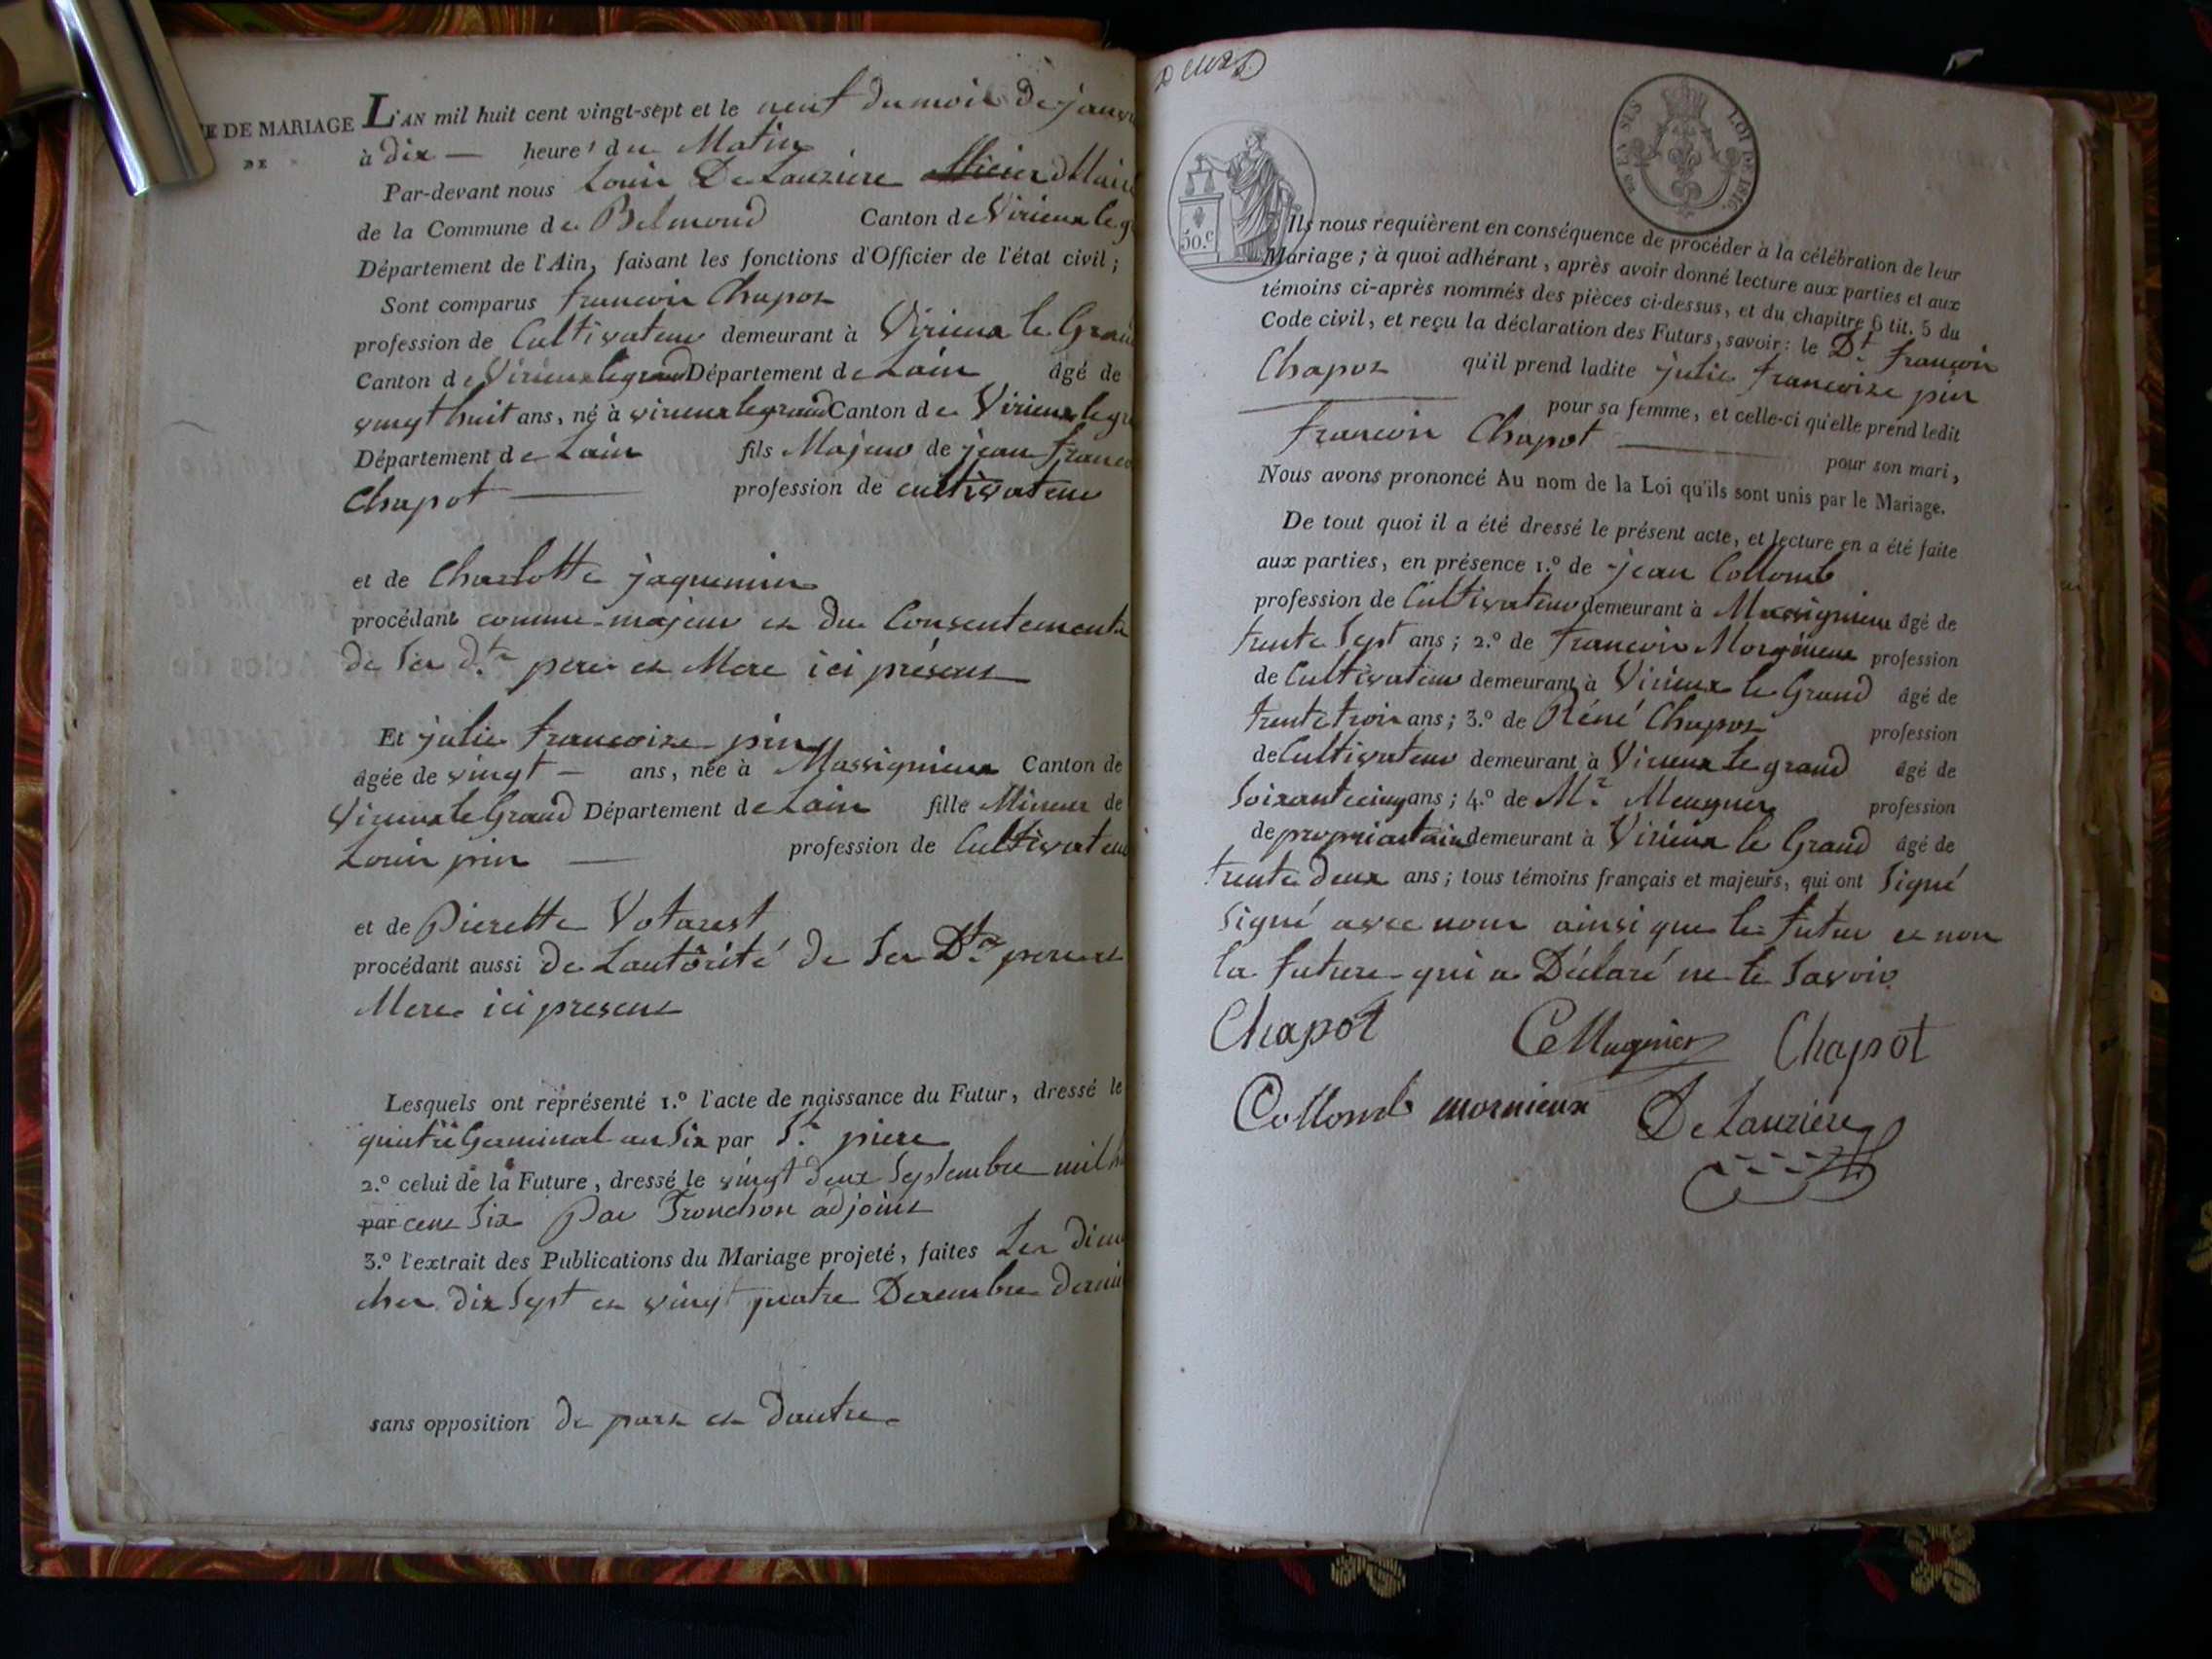 E DE MARIAGE
DE
L'AN mil huit cent vingt-sept et le neuf du mois de janvi
à dix — heures du Matin
Par-devant nous Louis De Lauziere Maire
de la Commune de Belmond Canton de Virieux le g
Département de l'Ain, faisant les fonctions d'Officier de l'état civil;
Sont comparus francois Chapot
profession de Cultivateur demeurant à Virieux le Gran
Canton de Virieux le grand Département de Lain âgé de
vingt huit ans, né à virieux le grand Canton de Virieux le gr
Département de Lain fils Majeur de jean franco
Chapot — profession de cultivateur
et de Charlotte jaquemin
procédant comme majeur et du Consentement
de Ses dts pere et Mere ici présent
Et julie francoise pin
âgée de vingt — ans, née à Massignieux Canton de
Virieux le Grand Département de Lain fille Mineur de
Louis pin — profession de Cultivateu
et de Pierette Votarest
procédant aussi de Lautôrité de Ses Dts pere et
Mere ici present
Lesquels ont représenté 1.º l'acte de naissance du Futur, dressé le
Germinal an Six par St. piere
2.º celui de la Future, dressé le vingt deux Septembre mil h
par cent Six Par Tronchon adjoint
3.º l'extrait des Publications du Mariage projeté, faites Les dim
ches dix Sept et vingt quatre Decembre derni
sans opposition de part et dautre
Deux
50.c
EN SUS
LOI DE 1816.
Ils nous requièrent en conséquence de procéder à la célébration de leur
Mariage; à quoi adhérant, après avoir donné lecture aux parties et aux
témoins ci-après nommés des pièces ci-dessus, et du chapitre 6 tit. 5 du
Code civil, et reçu la déclaration des Futurs, savoir: le Dt. françois
Chapot qu'il prend ladite julie francoise pin
pour sa femme, et celle-ci qu'elle prend ledit
francois Chapot — pour son mari,
Nous avons prononcé Au nom de la Loi qu'ils sont unis par le Mariage.
De tout quoi il a été dressé le présent acte, et lecture en a été faite
aux parties, en présence 1.º de jean Collomb
profession de Cultivateur demeurant à Massignieu âgé de
trente Sept ans; 2.º de francois Mornieux profession
de Cultivateur demeurant à Virieux le Grand âgé de
trente trois ans; 3.º de Réné Chapot profession
de Cultivateur demeurant à Virieux le grand âgé de
Soixante cinq ans; 4.º de Mr. Meugner profession
de propriaitair demeurant à Virieux le Grand âgé de
trente deux ans; tous témoins français et majeurs, qui ont Signé
Signé avec nous ainsi que le futur et non
la future qui a Déclaré ne le Savoir
Chapot Chapot
Collomb mornieux De Lauziere